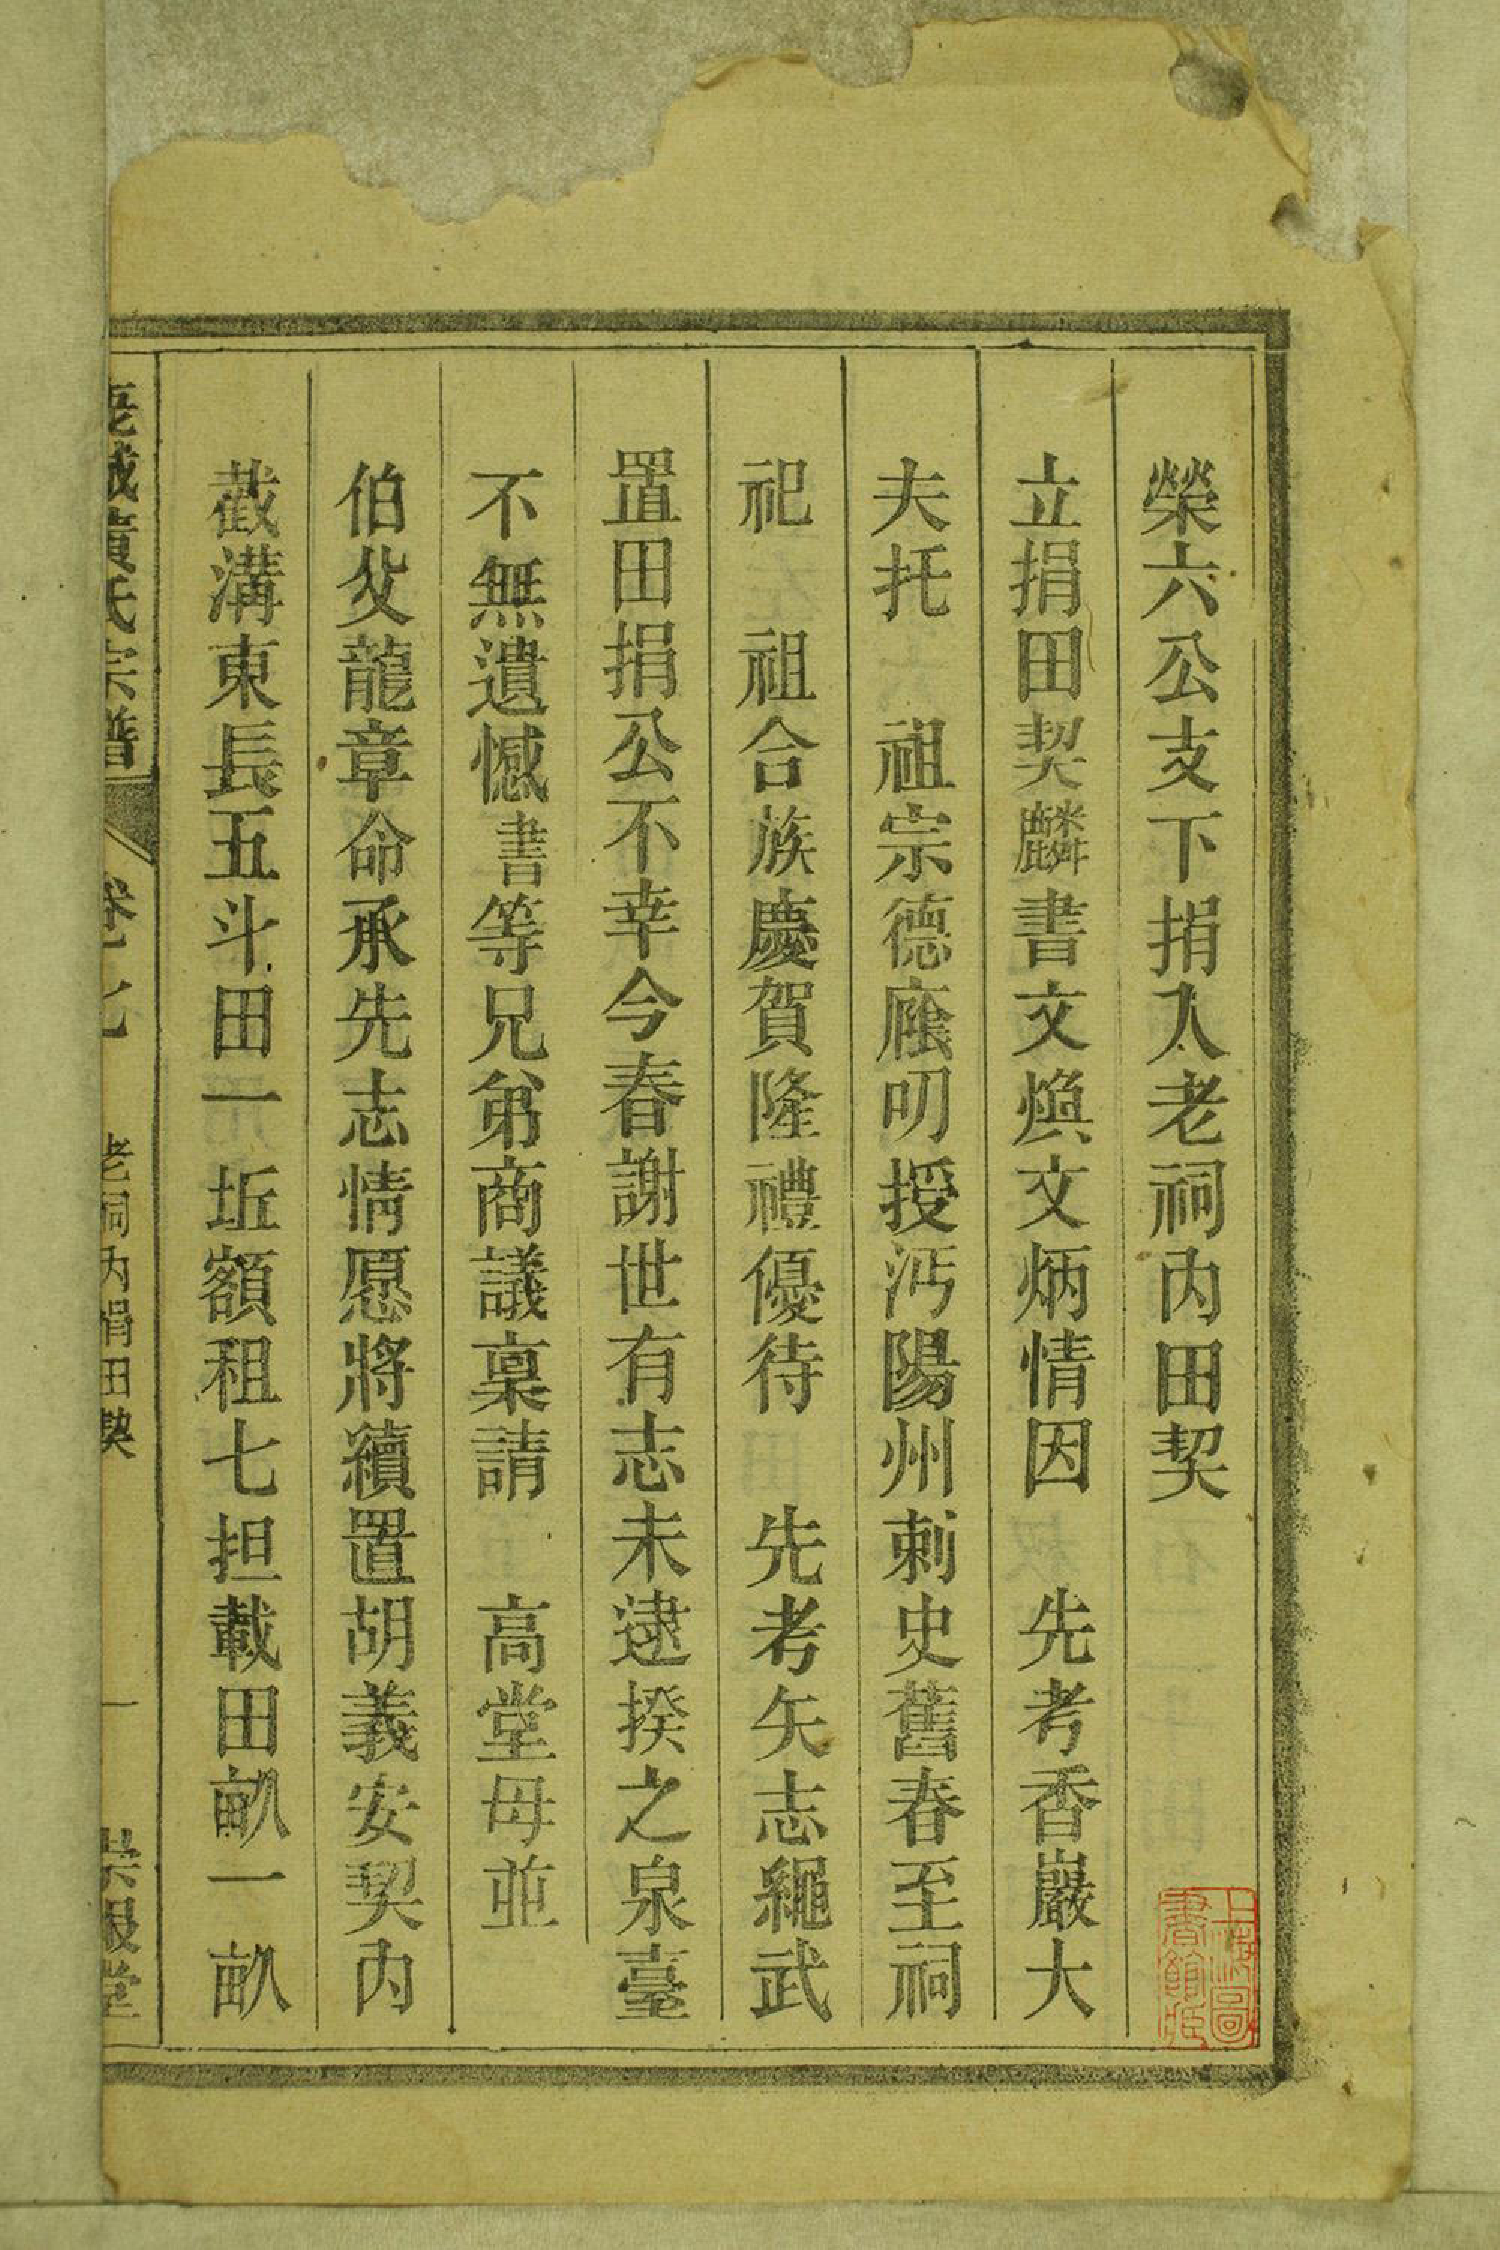 榮六公支下捐入老祠內田契
立捐田契麟書文煥文炳情因　先考香巖大
夫托　祖宗德廕叨授沔陽州刺史舊春至祠
祀　祖合族慶賀隆禮優待　先考矢志繩武
置田捐公不幸今春謝世有志未逮揆之泉臺
不無遺憾書等兄弟商議稟請　高堂母並
伯父龍章命承先志情愿將續置胡義安契內
截溝東長五斗田一坵額租七担載田畝一畝
黃氏宗譜
卷十七
老祠內捐田契
一
崇報堂
上海圖書館藏